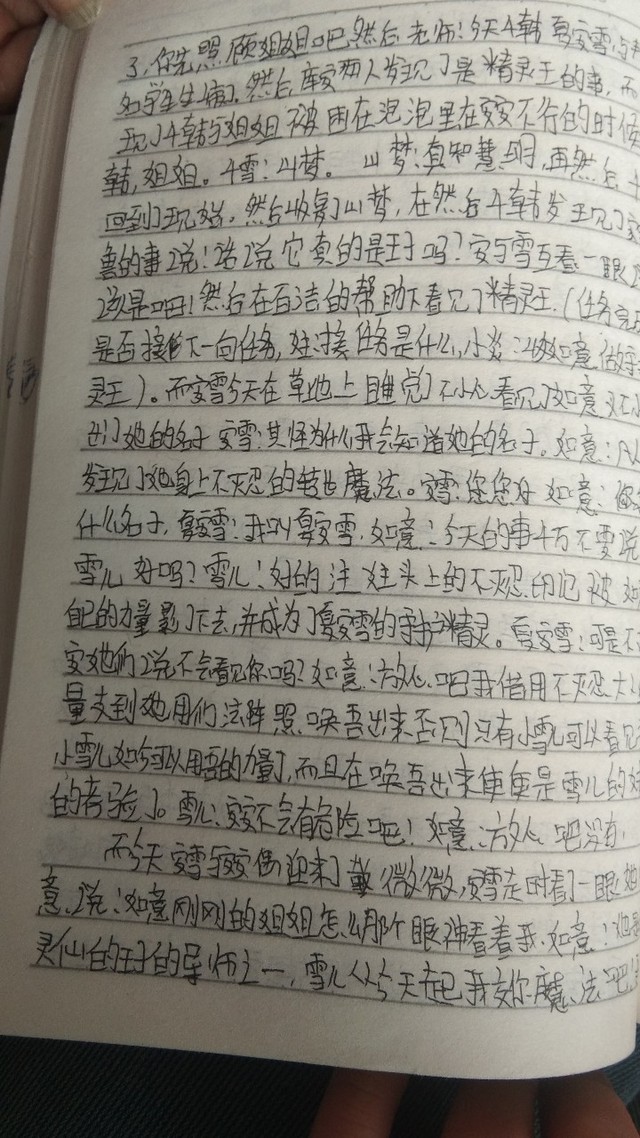 了，你先照顾姐姐吧然后老师！今天千韩夏安雪与
如学生庙了。然后库安两人发现了是精灵王的事，而
现了千韩与姐姐被困在泡泡里在安安不行的时候
韩，姐姐。千雪：山梦。山梦：真知慧明，再然后
回到了现始，然后收复了山梦，在然后千韩发现了
兽的事说！话说它真的是王子吗？安与雪互看一眼
该是吧！然后在百洁的帮助下看见了精灵王.（任务完
是否接下一向任务，注：接任务是什么，小炎：如意做
灵王）。而安雪今天在草地上睡觉了不小心看见了如意
出了她的名子 安雪：其怪为什么我会知道她的名子。如意：
发现了她身上不灭忍的转世魔法。安雪：您您好 如意：你
什么名子，夏安雪：我叫夏安雪，如意：今天的事千万不要说
雪儿好吗？雪儿：好的 注 注头上的不灭忍印记被如
自已的力量影了下去，并成为了夏安雪的守护精灵。夏安雪：可是
安她们说不会看见你吗？如意：放心吧我借用不灭忍大
量支到她用们法阵照唤吾出来否则只有小雪儿可以看见
小雪儿如今可以用吾的力量了，而且在唤吾出来使便是雪儿的
的考验了。雪儿：安安不会有危险吧！如意：放心吧没有
而今天安雪与安安偶迎来了微微，安雪走时看了一眼她
意，说：如意刚刚的姐姐怎么那个眼神看着我.如意：她是
灵仙的王子的导师之一，雪儿从今天起我交你魔法吧